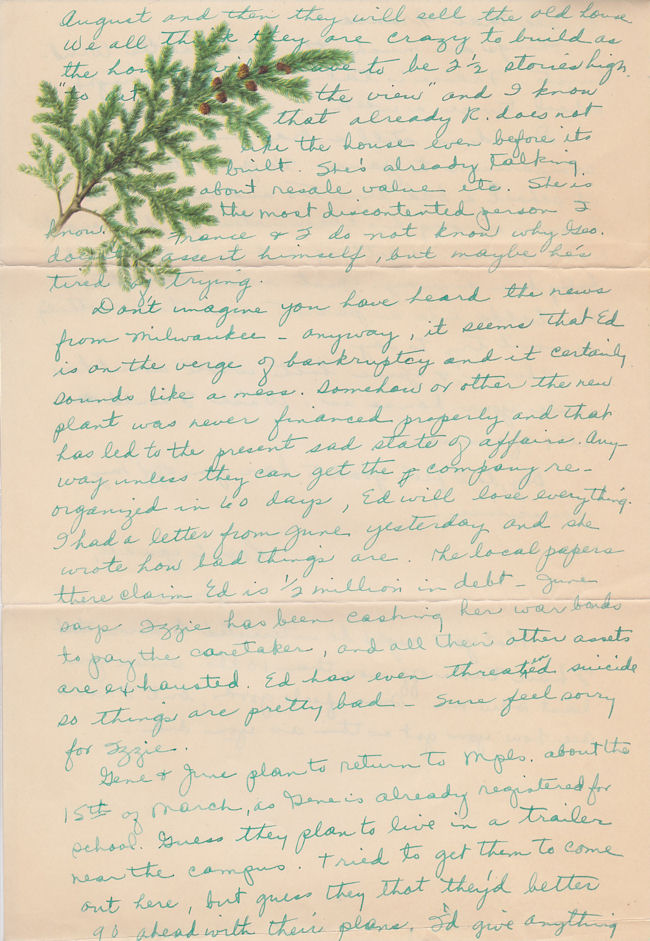 August and then they will sell the old house
We all think they are crazy to build as
the house will have to be 2½ stories high
"to out the view" and I know
that already R. does not
like the house even before its
built. She's already talking
about resale value etc. She is
the most discontented person I
know. France & I do not know why Geo.
doesn't assert himself, but maybe he's
tired of trying.
Don't imagine you have heard the news
from Milwaukee - anyway, it seems that Ed
is on the verge of bankruptcy and it certainly
sounds like a mess. Somehow or other the new
plant was never financed properly and that
has led to the present sad state of affairs. Any-
way unless they can get the company re-
organized in 60 days, Ed will lose everything.
I had a letter from June yesterday and she
wrote how bad things are. The local papers
there claim Ed is ½ million in debt - June
says Izzie has been cashing her war bonds
to pay the caretaker, and all their other assets
are exhausted. Ed has even threatened suicide
so things are pretty bad - Sure feel sorry
for Izzie.
Gene & June plan to return to Mpls. about the
15th of March, as Gene is already registered for
school. Guess they plan to live in a trailer
near the campus. Tried to get them to come
out here, but guess they that they'd better
go ahead with their plans. I'd give anything